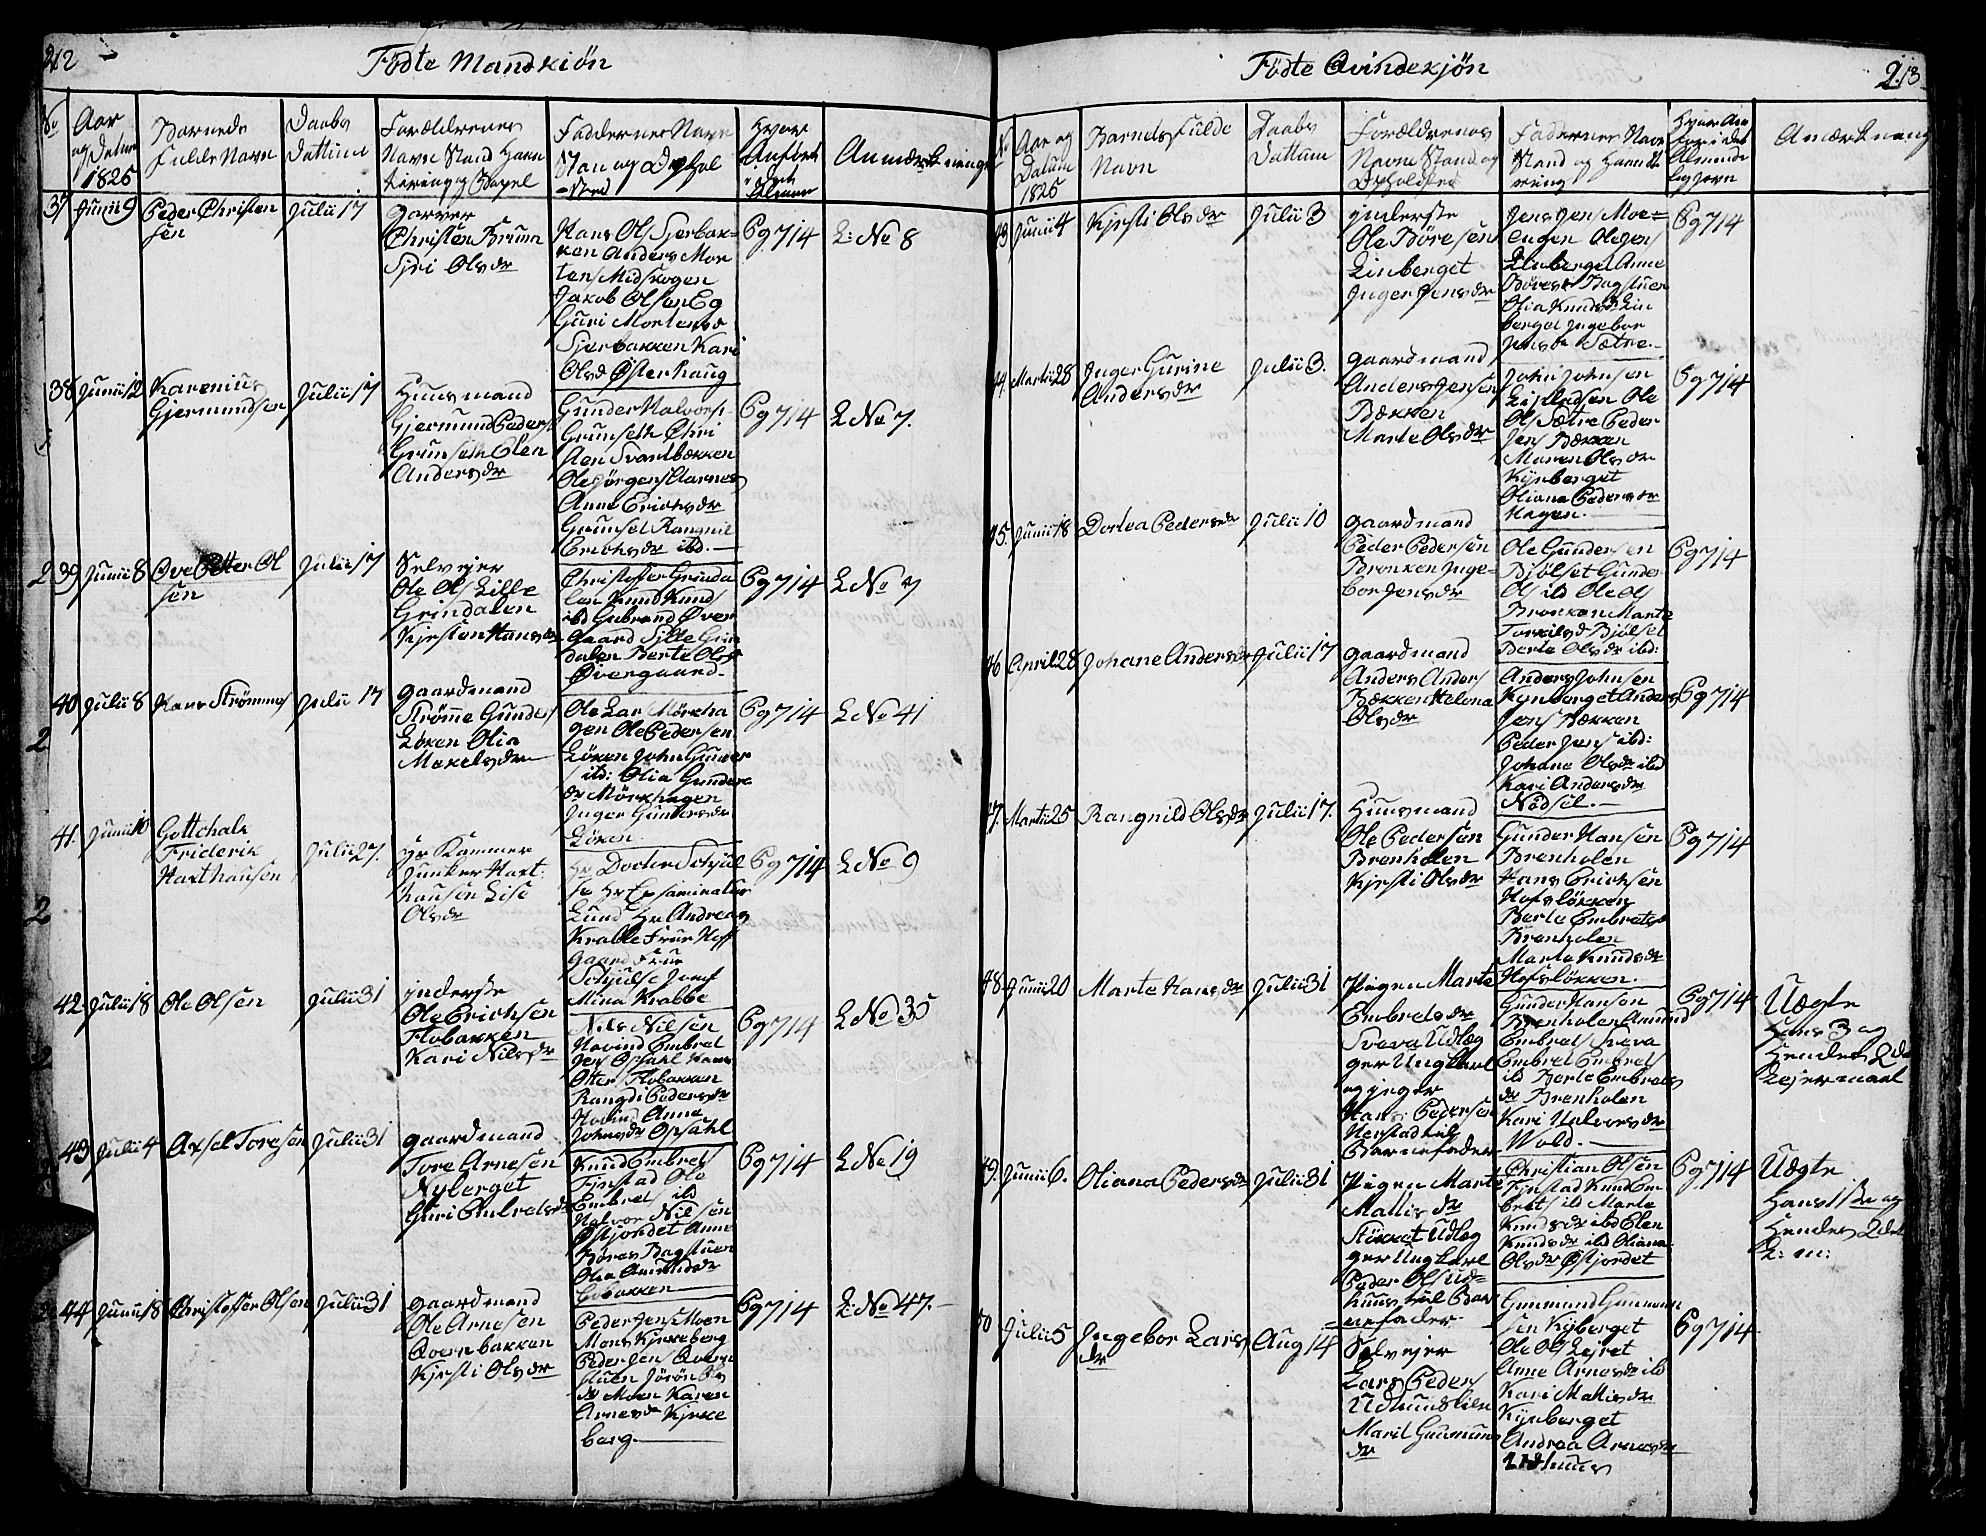 212
Födte Mandkiön
No
Aar og Datum 1825
Barneds Fulde Navn
Daabs Dattum
Forældrenes Navn Stand Haand tering og Bopel
Faddernes Navn Stan og Ophol Sted
Anmærkninger
37 Junii 9 Peder Christen
sen
Julii 17
Garver
Christen Bruun
Siri Olsdr
Hans Ols Sjerbak
ken Anders Mor
tens Midskogen
Jakob Olsen Eg
Guri Mortensd
Sjerbakken Kari
Olsd Østerhaug
Pg 714
L: No 8
38 Junii 12 Karenius
Gjermundsen
Julii 17
Huusmand
Gjermund Peders
Grunseth Elen
Andersdr
Gunder Halvors
Grunseth Chri
sten Svartbækken
Ole Jörgens Aarnes
Anne Erichsdr
Grunset Rangnil
Erichsdr ibd.
Pg 714
L No 7.
39 Junii 8 Ove Petter Ol
sen
Julii 17
Selvejer
Ole Ols Lille
Grindalen
Kjersten Hansdr
Christoffer Grinda
len Knud Knuds
ibd Gubrand Over
gaard Sille Grin
dalen Berte Olsd
Øvergaard.
Pg 714
L No 7
40 Julii 8 Hans Strömmes
Julii 17
Gaardmand
Strömme Gunders
Löken Olia
Mekelsdr
Ole Lars Mörkha
gen Ole Pedersen
Löken John Gunder
s ibd: Olia Gunders
dr Mörkhagen
Inger Gundersdr
Löken.
Pg 714
L No 41
41. Junii 10 Gottchalk
Friderik
Haxthausen
Julii 27.
Hr Kammer
Junker Haxt
hausen Lise
Olsdr
Hr Docter Schjul
se Hr Exsaminatus
Lund Hr Andreas
Krabbe Frue Hoff
gaard Frue
Schjulse Jomf
Mina Krabbe
Pg 714
L No 9
42 Julii 18 Ole Olsen
Julii 31
Inderste
Ole Erichsen
Flobakken
Kari Nilsdr
Nils Nilsen
Hovind Embret
Jens Opsahl Hans
Otters Flobakken
Rangdi Pedersdr
Hovind Anne
Johnsdr Opsahl
Pg 714
L No 35
43 Julii 4 Axsel Toresen
Julii 31
Gaardmand
Tore Arnesen
Nyberget
Guri Embretsdr
Knud Embrets
Finstad Ole
Embrets ibd
Halvor Nilsen
Østjordet Anne
Börres Bagstuen
Olia Amundsdr
Gobakken
Pg 714
L No 19
44 Junii 18 Christoffer Olsen
Julii 31
Gaardmand
Ole Arnesen
Qvernbakken
Kjersti Olsdr
Peder Jens Moen
Mons Kirkeberg
Peder Jens Qvern
stuen Jörön Ols
dr Moen Karen
Arnesdr Kjerke
berg.
Pg 714
L: No 47.
213
Födte Qvindekjön
Aar og Datum 1825
Barnets Fulde Navn
Daabs Dattum
Forældrenes Navne Stand og Opholdsted
Faddernes Navn Stand og Haandte ring
Anærkning
43 Junii 4 Kjersti Olsdr
Julii 3
Inderste
Ole Börresen
Linberget
Inger Jensdr
Jens Jens Moe
engen Ole Jens
Linberget Anne
Börres Bagstuen
Olia Knudsdr Lin
berget Ingebor
Jensdr Sætre.
Pg 714
44. Martii 28 Inger Gurine
Andersdr
Julii 3.
Gaardmand
Anders Jensen
Bækken
Marte Olsdr
John Johnsen
Ole
Ols Sætre Peder
Jens Bækken
Maren Olsdr
Kynberget
Oliana Pedersdr
Hagen.
Pg 714
45. Junii 18 Dortea Pedersdr
Julii 10
Gaardmand
Peder Pedersen
Bronken Inge
bor Jensdr
Ole Gundersen
Bjölset Gunder
Ols ibd Ole Ols
Bronken Marte
Torkilsd Bjölset
Berte Olsdr ibd:
Pg 714
46 April 28 Johane Andersdr
Julii 17
Gaardmand
Anders Anders
Bækken Helena
Olsdr
Anders Johnsen
Kynberget Anders
Jens Bækken
Peder Jens ibd:
Johane Olsdr ibd
Kari Andersdr
Nödsel.
Pg 714
47. Martii 25 Rangnild Olsdr
Julii 17.
Huusmand
Ole Pedersen
Brenholen
Kjersti Olsdr
Gunder Hansen
Brenholen
Hans Erichsen
Hofslökken
Berte Embretsd
Brenholen
Marte Knudsdr
Hofslökken.
Pg 714
48. Junii 20 Marte Hansdr
Julii 31
Pigen Marte
Embretsdr
Svera Udlæg
ger Ungkarl
og jeger
Hans Pedersen
Herstad til
Barnefader
Gunder Hansen
Brenholen Amund
Embrets Svera
Embret Embrets
ibd Berte Embrets
dr Brenholen
Kari Halvorsdr
Wold.
Pg 714
Uægte
Hans 3 og
Hendes 2d
Lejermaal
49. Junii 6. Oliana Pedersdr
Julii 31
Pigen Marte
Mattisdr
Stökket Udlæg
ger Ungkarl
Peder Ols Ud
huus til Bar
nefader
Christian Olsen
Finstad Knud Em
brets ibd Marte
Knudsdr ibd Elen
Knudsdr ibd Oliana
Olsdr Østjordet
Pg 714
Uægte
Hans 1ste og
Hendes 2det
L: m:
50 Julii 5 Ingebor Lars
dr
Aug 14
Selvejer
Lars Peders
Udhuuslien
Marit Gunmuns
dr
Gunmund Gunmun
sen Kyberget
Ole Ols Lejret
Anne Arnesdr ibd
Kari Mattisdr
Kynberget
Andrea Arnesdr
Udhuus
Pg 714